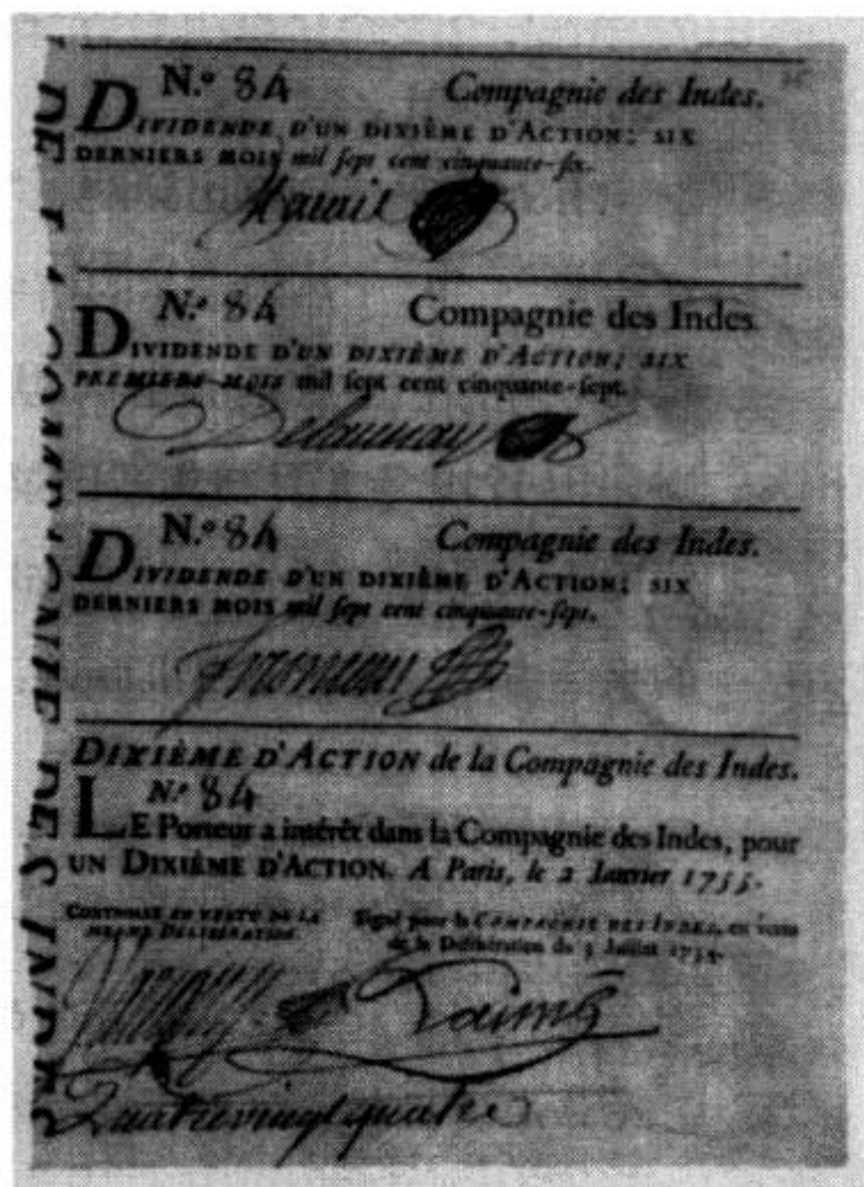 N.º 84 Compagnie des Indes.
DIVIDENDE D'UN DIXIÈME D'ACTION; SIX
DERNIERS MOIS mil sept cent cinquante-six.
N.º 84 Compagnie des Indes.
DIVIDENDE D'UN DIXIÈME D'ACTION; SIX
PREMIERS MOIS mil sept cent cinquante-sept.
Delaunay
N.º 84 Compagnie des Indes.
DIVIDENDE D'UN DIXIÈME D'ACTION; SIX
DERNIERS MOIS mil sept cent cinquante-sept.
DIXIÈME D'ACTION de la Compagnie des Indes.
N.º 84
LE Porteur a intérêt dans la Compagnie des Indes, pour
UN DIXIÈME D'ACTION. A Paris, le 2 Janvier 1755.
CONTROLLÉ EN VERTU DE LA
MESME DÉLIBÉRATION.
Signé pour la COMPAGNIE DES INDES, en vertu
de la Délibération du 3 Juillet
Quatrevingt quatre
DE LA COMPAGNIE DES INDES